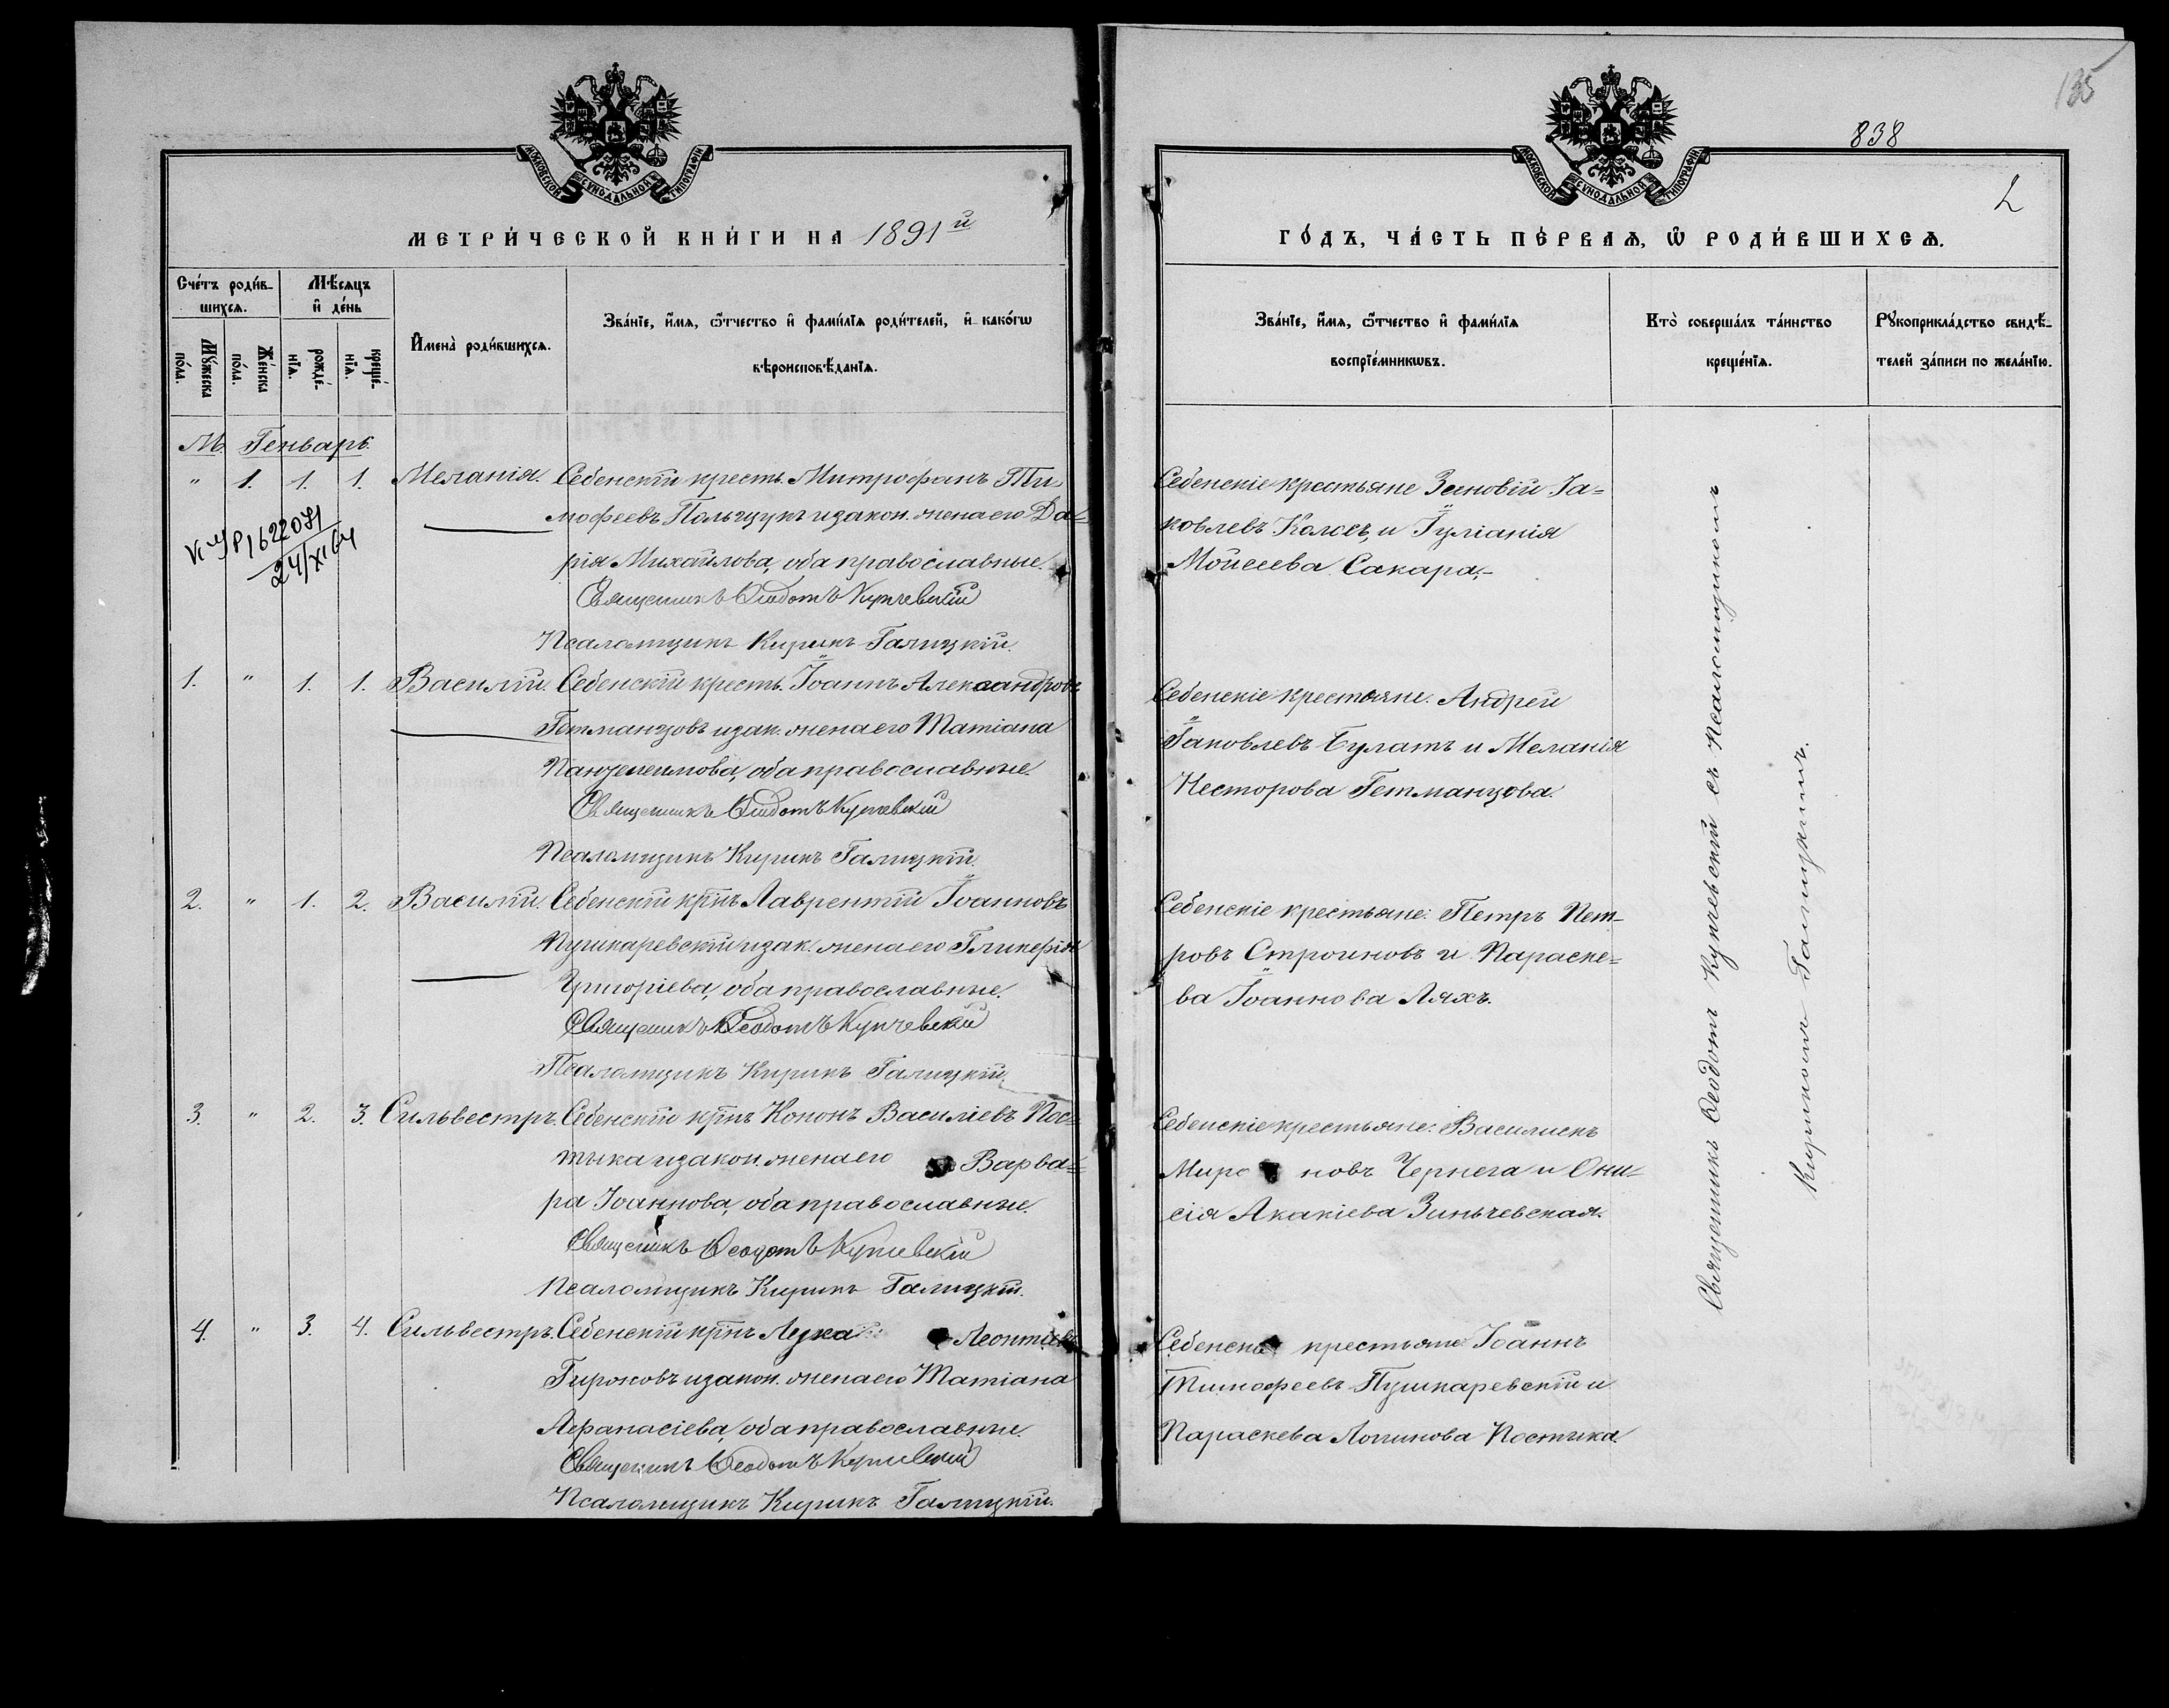 135
838
2
МОСКОВСКОЙ СУНОДАЛЬНОЙ ТИПОГРАФІИ
МОСКОВСКОЙ СУНОДАЛЬНОЙ ТИПОГРАФІИ
МЕТРИ́ЧЕСКОЙ КНИ́ГИ НА 1891й
ГО́ДЪ, ЧА́СТЬ ПЕ́РВАѦ, Ѡ РОДИ́ВШИХСѦ.
Сче́тъ роди́в-
шихсѧ.
Мꙋ́жеска
по́ла.
Же́нска
по́ла.
Мѣ́сѧцъ
и҆ де́нь
рожде́-
нїѧ.
креще́-
нїѧ.
И҆мена̀ роди́вшихсѧ.
Зва́нїе, и҆́мѧ, ѻ҆́тчество и҆ фами́лїѧ роди́телей, и҆ како́гѡ
вѣроисповѣ́данїѧ.
Зва́нїе, и҆́мѧ, ѻ҆́тчество и҆ фами́лїѧ
воспрїе́мникѡвъ.
Кто̀ соверша́лъ та́инство
креще́нїѧ.
Рꙋкоприкла́дство свидѣ́-
телей за́писи по жела́нїю.
М. Генварь.
" 1. 1. 1. Меланія. Себенскій кресть. Митрофанъ Ти-
мофеевъ Польщукъ и закон. жена его Да-
рія Михайлова, оба православные.
Священникъ Ѳеодотъ Купчевскій
Псаломщикъ Кирикъ Галицкій.
1622071
24/XI 64
Себенскіе крестьяне Зиновій Іа-
ковлевъ Колосъ, и Іуліанія
Мойсеева Сакара.-
1. " 1. 1. Василій. Себенскій кресть. Іоаннъ Александровъ
Гетманцовъ и зак. жена его Татіана
Панteлеимова, оба православные.
Священникъ Ѳеодотъ Купчевскій
Псаломщикъ Кирикъ Галицкій.
Себенскіе крестьяне: Андрей
Іаковлевъ Булатъ и Меланія
Несторова Гетманцова.
2. " 1. 2. Василій. Себенскій крнъ Лаврентій Іоанновъ
Пушкаревскій и зак. жена его Гликерія
Григоріева, оба православные.
Священникъ Ѳеодотъ Купчевскій
Псаломщикъ Кирикъ Галицкій.
Себенскіе крестьяне: Петръ Пет-
ровъ Строиновъ и Параске-
ва Іоаннова Ляхъ.
3. " 2. 3. Сильвестръ. Себенскій крнъ Кононъ Василіевъ Пос-
тыка и закон. жена его Варва-
ра Іоаннова, оба православные.
Священникъ Ѳеодотъ Купчевскій
Псаломщикъ Кирикъ Галицкій.
Себенскіе крестьяне: Василискъ
Миро новъ Чернега и Они-
сія Акакіева Зиньчевская.
4. " 3. 4. Сильвестръ. Себенскій крнъ Лука Леонтіевъ
Гироновъ и закон. жена его Татіана
Афанасіева, оба православные.
Священникъ Ѳеодотъ Купчевскій
Псаломщикъ Кирикъ Галицкій.
Себенскіе крестьяне Іоаннъ
Тимофеевъ Пушкаревскій и
Параскева Логинова Постыка.
Священникъ Ѳеодотъ Купчевскій съ Псаломщикомъ
Кирикомъ Галицкимъ.